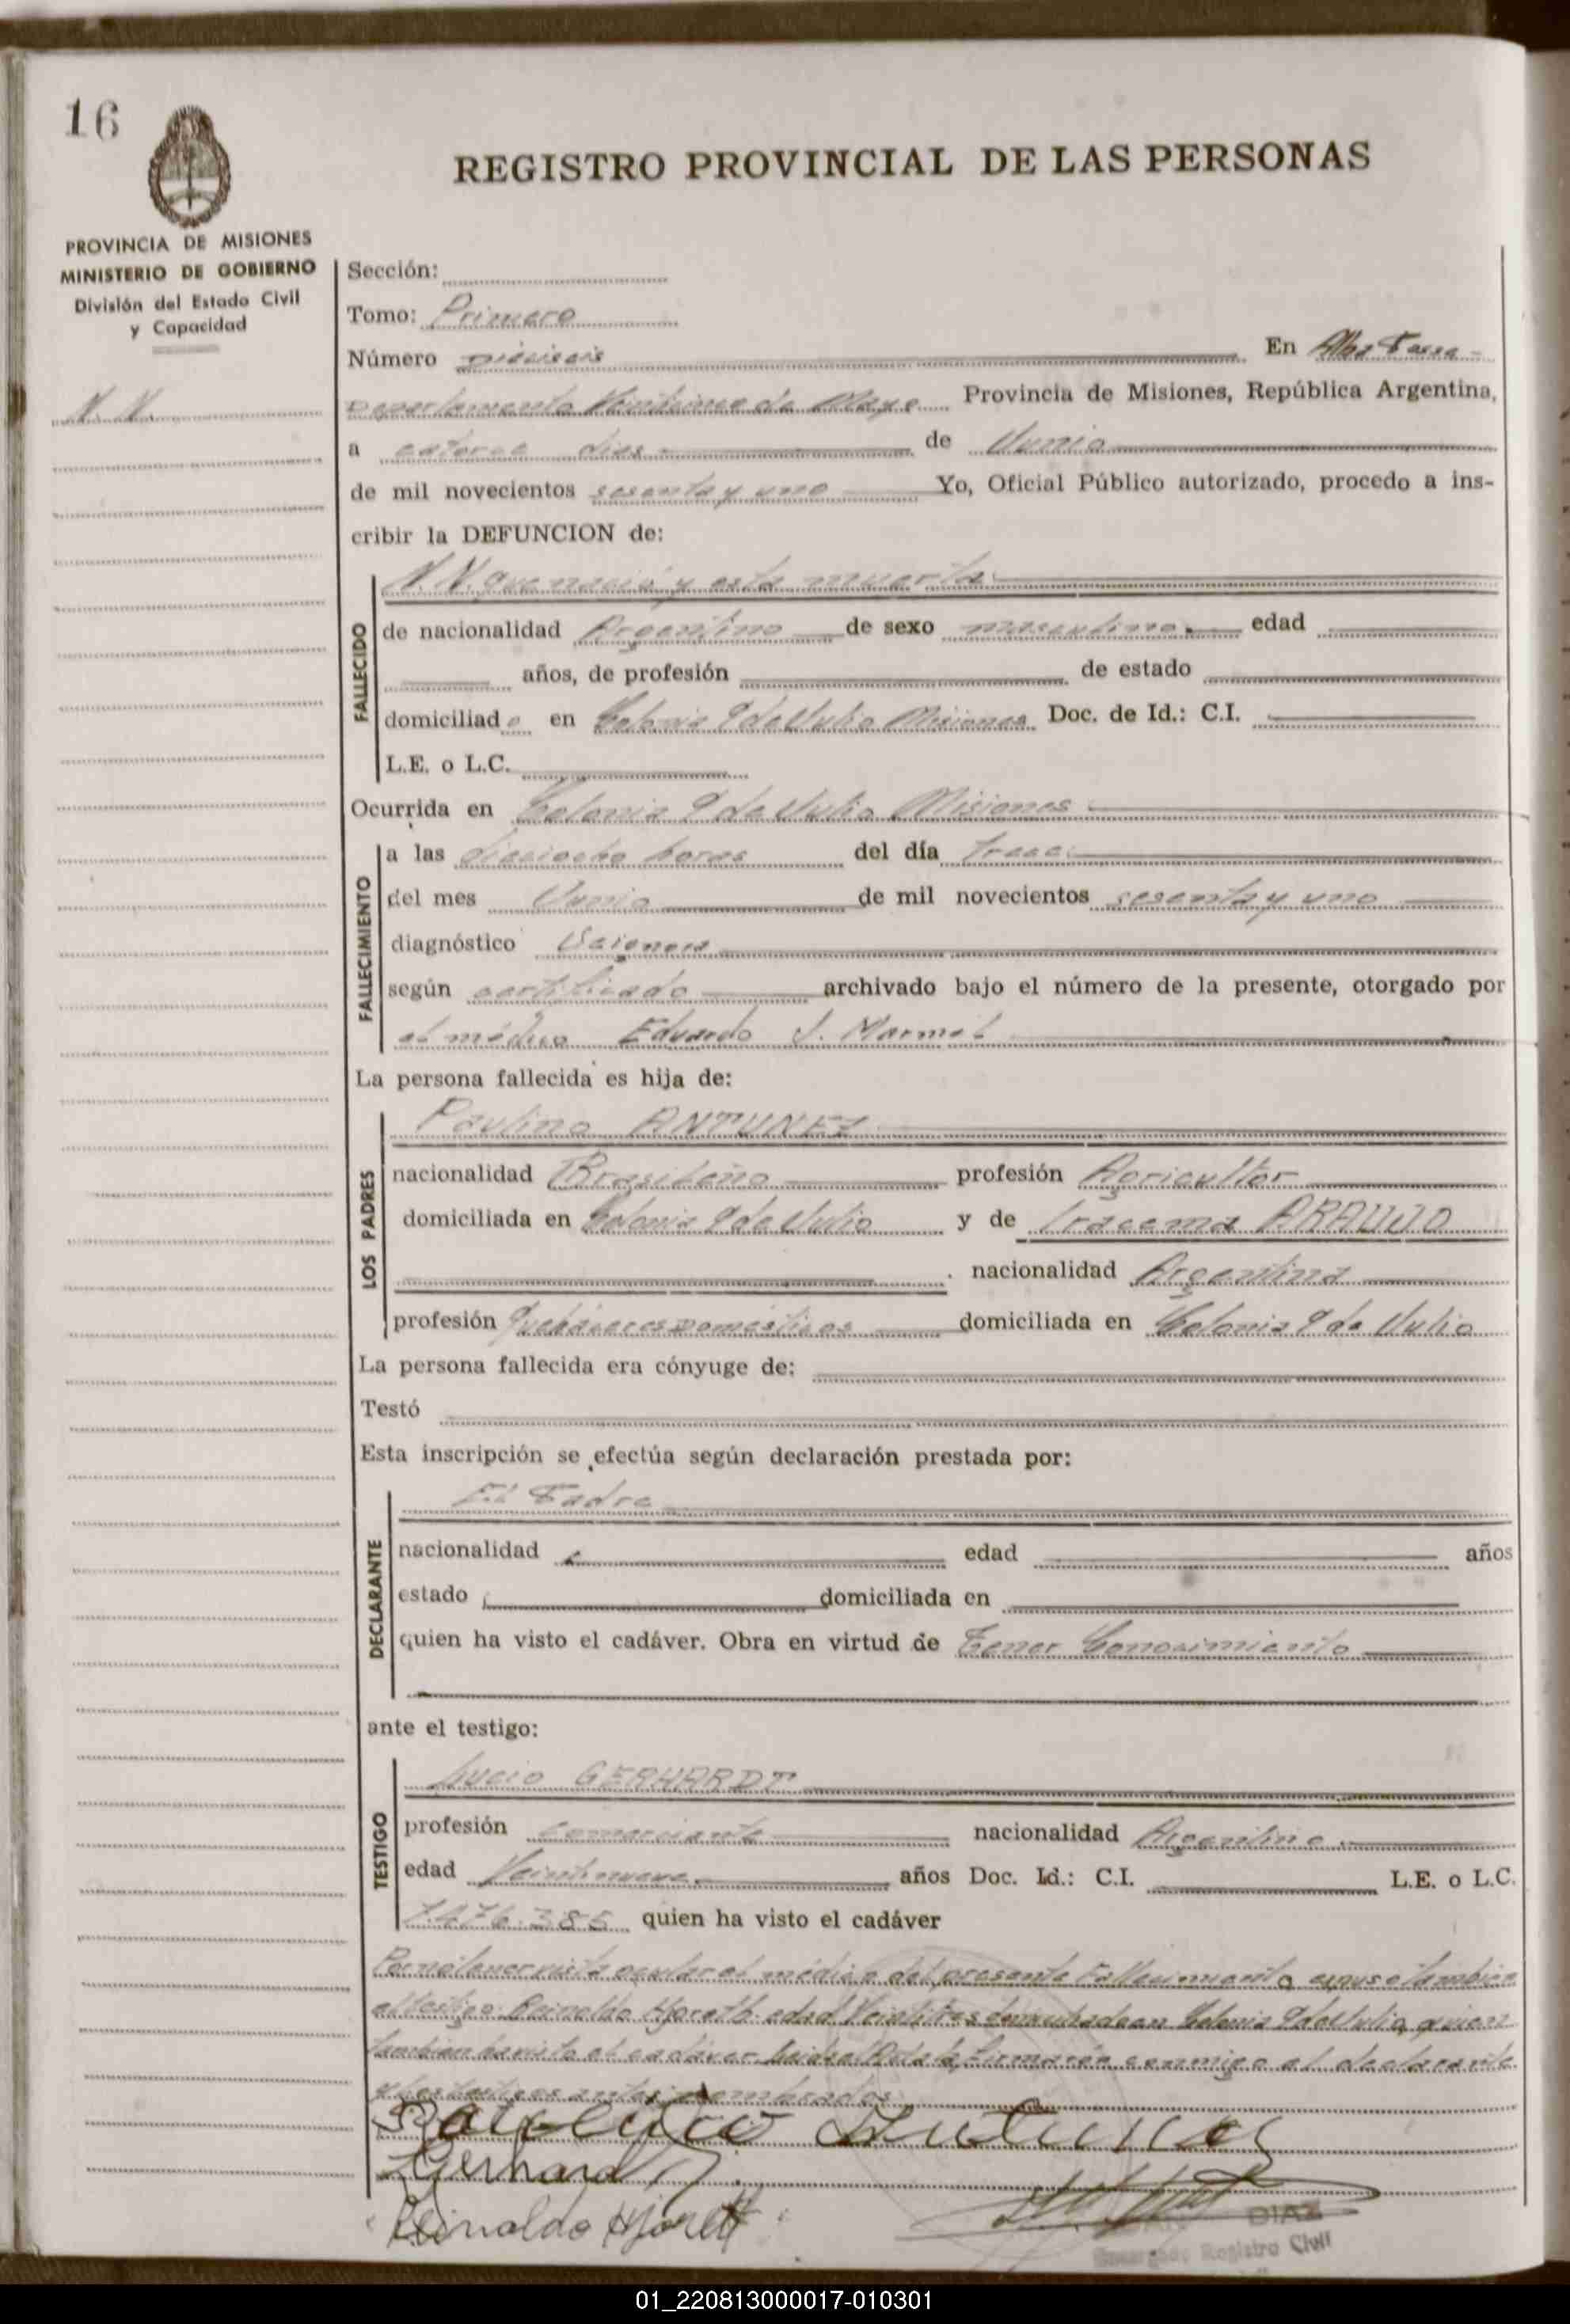 16
REGISTRO PROVINCIAL DE LAS PERSONAS
PROVINCIA DE MISIONES
MINISTERIO DE GOBIERNO
División del Estado Civil
y Capacidad
N. N.
Sección:
Tomo: Primero
Número Dieciseis En Alba Posse
Departamento Veinticinco de Mayo Provincia de Misiones, República Argentina,
a catorce dias de Junio
de mil novecientos sesenta y uno Yo, Oficial Público autorizado, procedo a ins-
cribir la DEFUNCION de:
FALLECIDO
N.N. que nació y esta muerto
de nacionalidad Argentino de sexo masculino edad
años, de profesión de estado
domiciliado en Colonia 9 de Julio Misiones Doc. de Id.: C.I.
L.E. o L.C.
Ocurrida en Colonia 9 de Julio Misiones
FALLECIMIENTO
a las dieciocho horas del día trece
del mes Junio de mil novecientos sesenta y uno
diagnóstico
según certificado archivado bajo el número de la presente, otorgado por
el médico Eduardo J. Marmol
La persona fallecida es hija de:
LOS PADRES
Paulino ANTUNEZ
nacionalidad Brasileño profesión Agricultor
domiciliada en Colonia 9 de Julio y de Iracema ARAUJO
nacionalidad Argentina
profesión Quehaceres Domésticos domiciliada en Colonia 9 de Julio
La persona fallecida era cónyuge de:
Testó
Esta inscripción se efectúa según declaración prestada por:
DECLARANTE
El Padre
nacionalidad edad años
estado domiciliada en
quien ha visto el cadáver. Obra en virtud de Tener Conocimiento
ante el testigo:
TESTIGO
Lucio GERHARDT
profesión comerciante nacionalidad Argentino
edad Veintinueve años Doc. Id.: C.I. L.E. o L.C.
7.476.385 quien ha visto el cadáver
Por no tener vista ocular el médico del presente Fallecimiento, expuso tambien
el testigo Reinaldo Hjoreth edad Veintitres domiciliado en Colonia 9 de Julio, quien
tambien ha visto el cadáver Leida el Acta la firmarón conmigo el declarante
y los testigos antes nombrados.
Paulino Antunez
Gerhardt
Reinaldo Hjoreth
DIAZ
Encargado Registro Civil
01_220813000017-010301